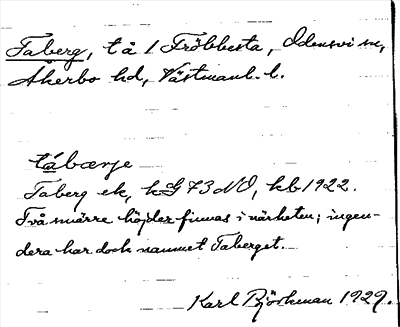 Taberg, t å 1 Fröbbesta, Odensvi sn,
Åkerbo hd, Västmanl. l.
tábærje
Taberg ek, kG 73 NO, kb 1922.
Två smärre höjder finnas i närheten; ingen-
dera har dock namnet Taberget.
Karl Björkman 1929.